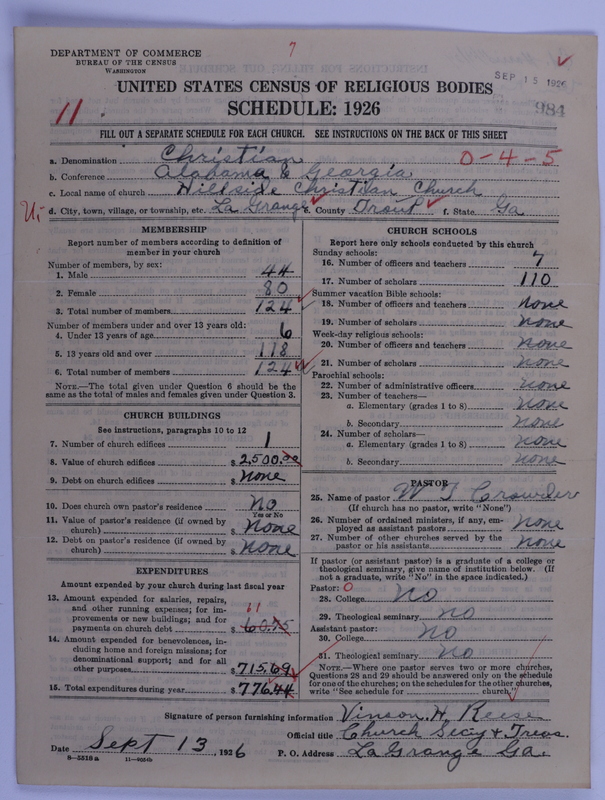 7
DEPARTMENT OF COMMERCE
BUREAU OF THE CENSUS
WASHINGTON
SEP 15 1926
UNITED STATES CENSUS OF RELIGIOUS BODIES
11
SCHEDULE: 1926
984
FILL OUT A SEPARATE SCHEDULE FOR EACH CHURCH. SEE INSTRUCTIONS ON THE BACK OF THIS SHEET
a. Denomination Christian 0-4-5
b. Conference Alabama & Georgia
c. Local name of church Hillside Christian Church
d. City, town, village, or township, etc. La Grange e. County Troup f. State Ga
MEMBERSHIP
Report number of members according to definition of
member in your church
Number of members, by sex:
1. Male 44
2. Female 80
3. Total number of members 124
Number of members under and over 13 years old:
4. Under 13 years of age 6
5. 13 years old and over 118
6. Total number of members 124
NOTE.—The total given under Question 6 should be the
same as the total of males and females given under Question 3.
CHURCH BUILDINGS
See instructions, paragraphs 10 to 12
7. Number of church edifices 1
8. Value of church edifices $ 2,500.00
9. Debt on church edifices $ None
10. Does church own pastor's residence No
Yes or No
11. Value of pastor's residence (if owned by
church) $ None
12. Debt on pastor's residence (if owned by
church) $ None
EXPENDITURES
Amount expended by your church during last fiscal year
13. Amount expended for salaries, repairs,
and other running expenses; for im-
provements or new buildings; and for
61
payments on church debt $ 60.75
14. Amount expended for benevolences, in-
cluding home and foreign missions; for
denominational support; and for all
other purposes $ 715.69
15. Total expenditures during year $ 776.44
CHURCH SCHOOLS
Report here only schools conducted by this church
Sunday schools:
16. Number of officers and teachers 7
17. Number of scholars 110
Summer vacation Bible schools:
18. Number of officers and teachers none
19. Number of scholars none
Week-day religious schools:
20. Number of officers and teachers none
21. Number of scholars none
Parochial schools:
22. Number of administrative officers none
23. Number of teachers—
a. Elementary (grades 1 to 8) none
b. Secondary none
24. Number of scholars—
a. Elementary (grades 1 to 8) none
b. Secondary none
PASTOR
25. Name of pastor W T Crowder
(If church has no pastor, write "None")
26. Number of ordained ministers, if any, em-
ployed as assistant pastors none
27. Number of other churches served by the
pastor or his assistants none
If pastor (or assistant pastor) is a graduate of a college or
theological seminary, give name of institution below. (If
not a graduate, write "No" in the space indicated.)
Pastor: 0
28. College No
29. Theological seminary No
Assistant pastor:
30. College No
31. Theological seminary No
NOTE.—Where one pastor serves two or more churches,
Questions 28 and 29 should be answered only on the schedule
for one of the churches; on the schedules for the other churches,
write "See schedule for church."
Signature of person furnishing information Vinson H. Reese
Official title Church Sec'y & Treas.
Date Sept 13, 1926 P. O. Address LaGrange Ga.
8-5518a 11-9054b